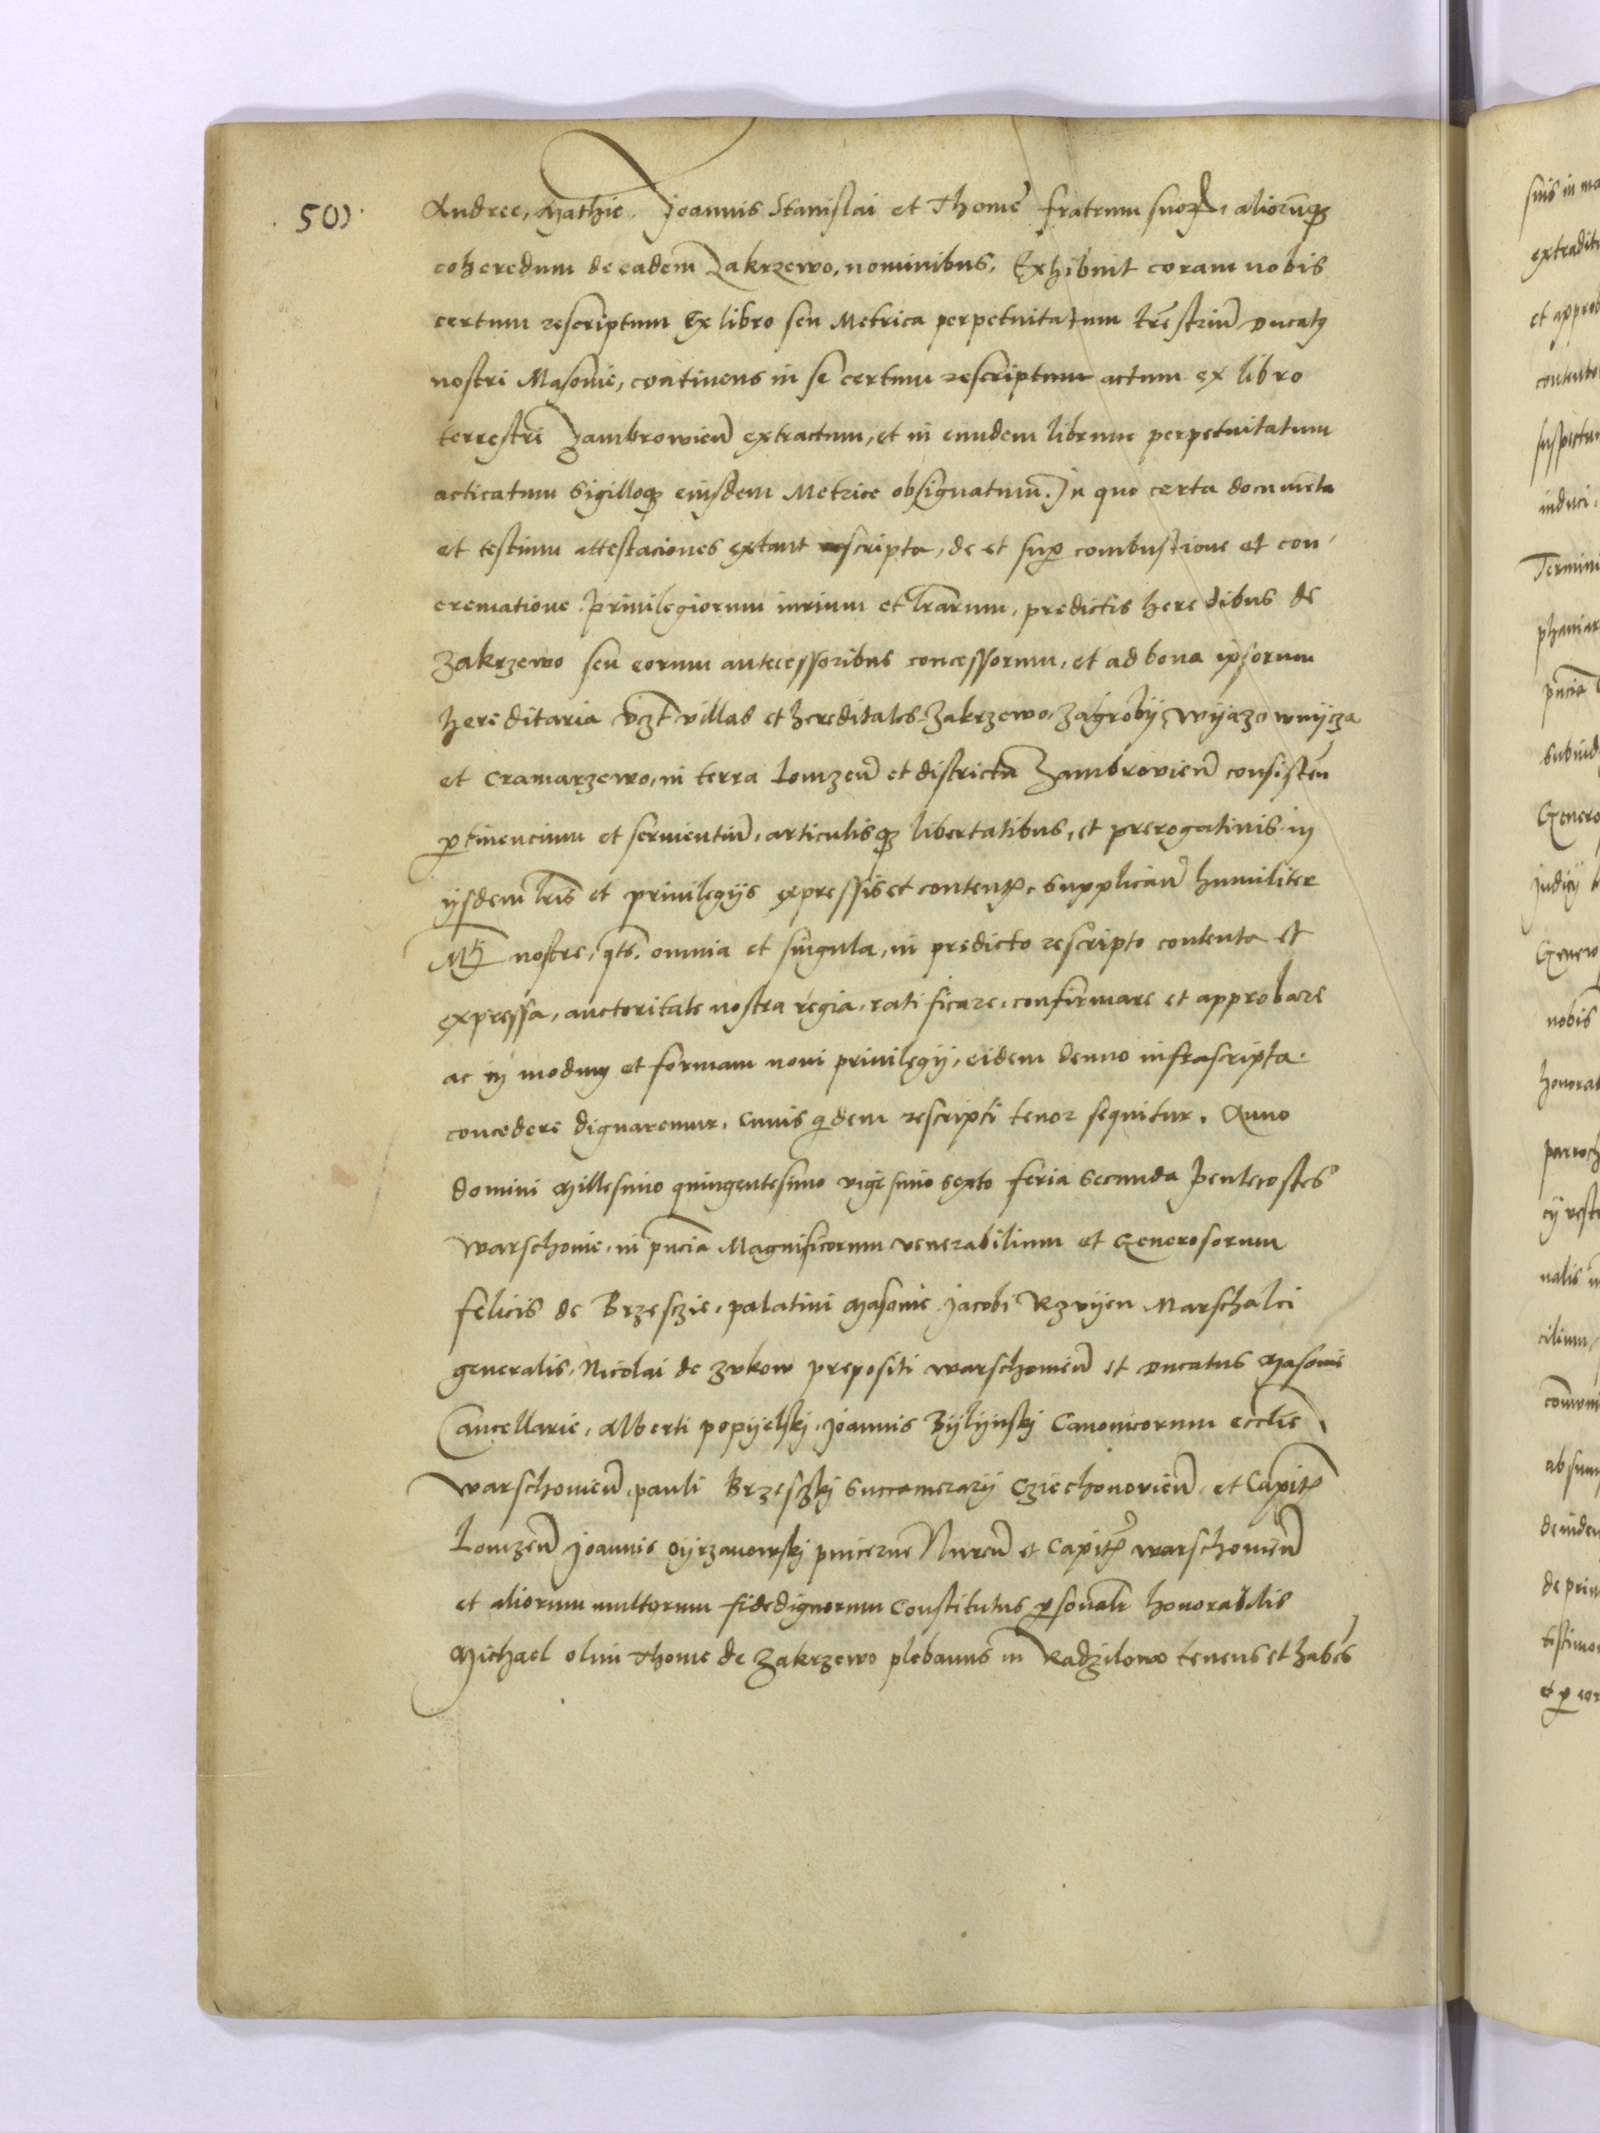 50)
Andree, Mathie, Joannis Stanislai et Thome fratrum suoꝝ, aliorūqꝫ
coheredum de eadem Zakrzewo, nominibus, Exhibuit coram nobis
certum rescriptum Ex libro seu Metrica perpetuitatum trēstriū Ducatꝰ
nostri Masovie, continens in se certum rescriptum actum ex libro
terrestri Zambrowień extractum, et in eundem librum perpetuitatum
acticatum Sigilloqꝫ eiusdem Metrice obsignatum. In quo certa documēta
et testium attestaciones extant scripta, de et suꝑ combustione et con
crematione privilegiorum iurium et lr̄arum, predictis heredibus de
Zakrzewo seu eorum antecessoribus concessorum, et ad bona ipsorum
hereditaria vꝫt villas et hereditates Zakrzewo, Zagroby, Wyazownycza
et Cramarzewo, in terra Lomzeń et districtu Zambrovień consisteń
ꝑtinencium et servientiū, articulisqꝫ libertatibus, et prerogativis in
ijsdem lr̄is et privilegijs expressis et contentꝭ, supplicań humiliter
Mti nostre, qts. omnia et singula, in predicto rescripto contenta et
expressa, auctoritate nostra regia, ratificare, confirmare et approbare
ac in modum et formam novi privilegij, eidem denuo infrascripta
concedere dignaremur. Cuius qdem rescripti tenor sequitur. Anno
domini Millesimo quingentesimo vigesimo sexto feria secunda Pentecostes
Warschovie, in pn̄cia Magnificorum venerabilium et Generosorum
felicis de Brzesczie, palatini Masovie Jacobi Rzvyen Marschalci
generalis, Nicolai de Zukow prepositi Warschovień et Ducatus Masovie
Cancellarie, Alberti popyelskj, Joannis Bylynskj Canonicorum eccl̄ie
Warschovień, pauli Brzesczkj Succamerarij Cziechonovień et Capitꝭ
Lomzeń Joannis Oyrzanowskj pincerne Nureń et Capitꝭ Warschovień
et aliorum multorum fidedignorum Constitutus ꝑsonalr̄ honorabilis
Michael olim Thome de Zakrzewo plebanus in Radzilowo tenens et habēs